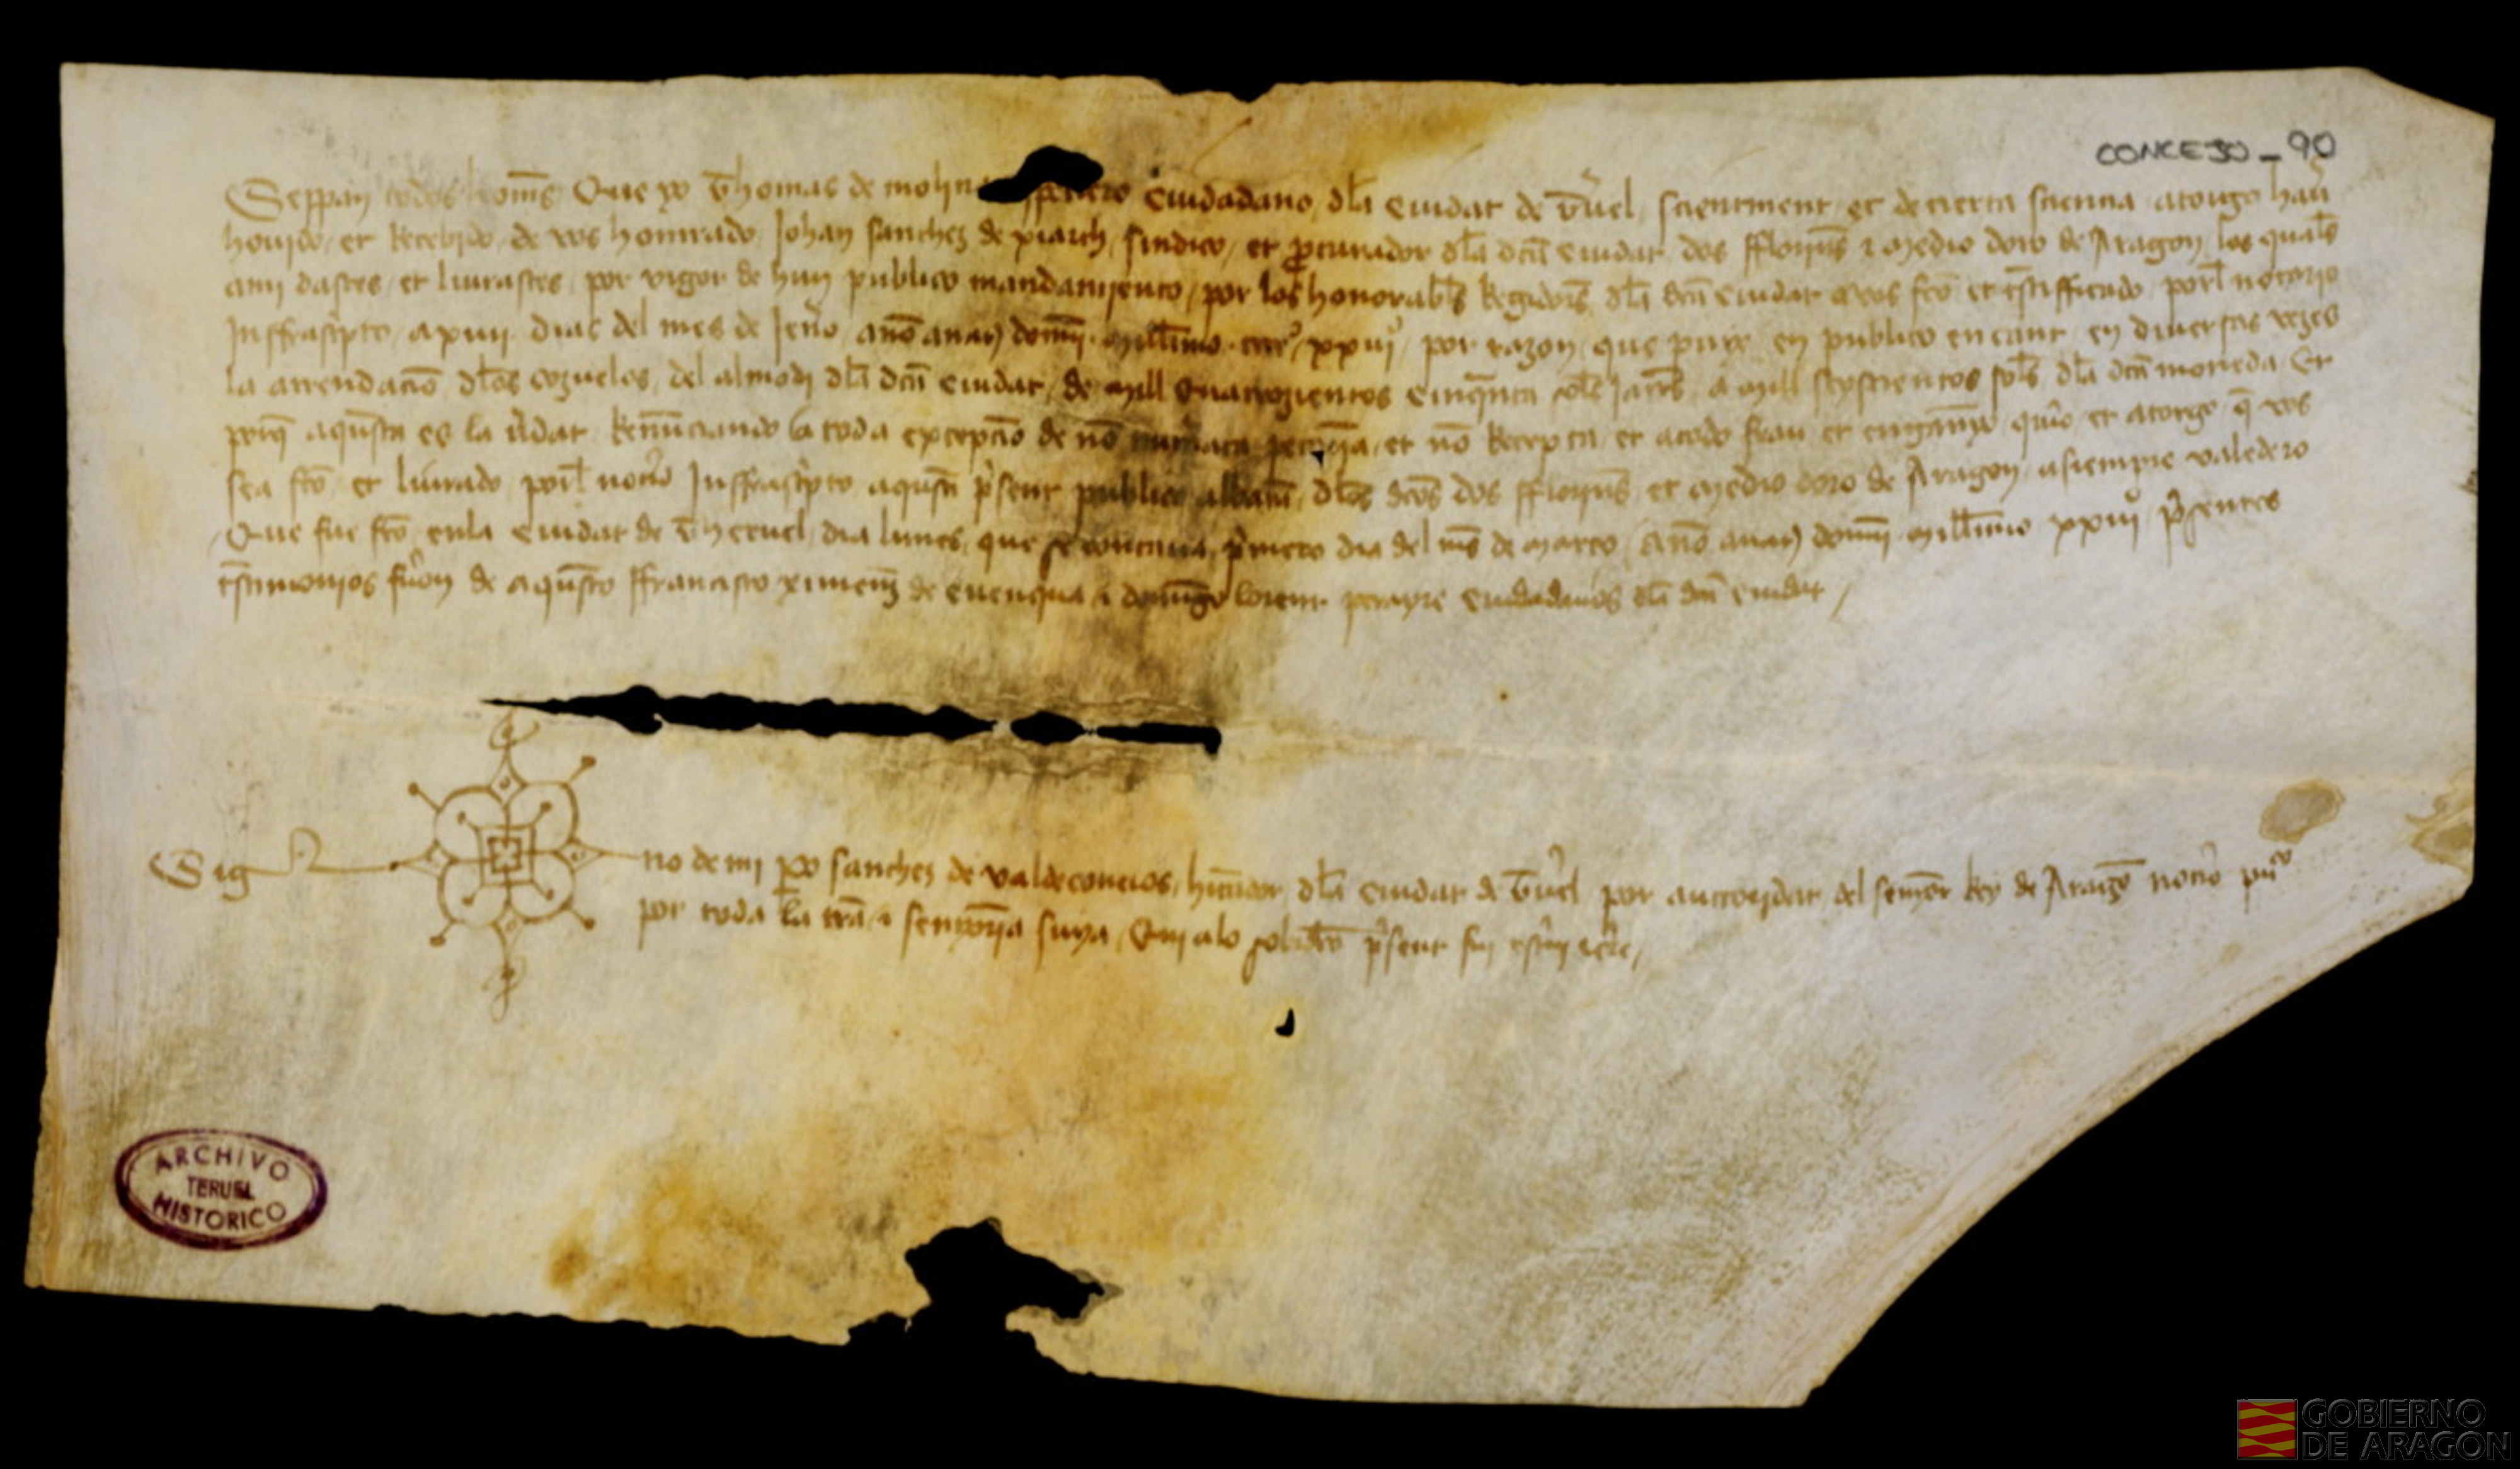 CONCEJO _ 90
Seppan todos homēs Que yo Thomas de molina ciudadano dla Ciudat de Teruel scientment et de cierta sciencia atorgo hauer
houido et Recebido de vos honrado Johan sanchez de xiarch sindico et procurador dla dcā Ciudat dos fflorins e medio doro de Aragon los quals
ami dastes et liurastes por vigor de hun publico mandamjento por los honorables Regidores dla dcā Ciudat a vos fcō et testifficado porel notario
Inffrascripto a dias del mes de Jenero anno anat domini millesimo por razon que puye en publico encant en diuersas vezes
la arrendacio dlos cozuelos del almodi dla dcā Ciudat de mill quatrozientos Cinquanta sols a mill seyscientos sols dla dcā moneda Et
porque aquesta es la verdat Renunciando a toda excepcio de no pecunia et no Recepta et a todo frau et enganyo quiero et atorgo que vos
sea fcō et liurado porel notario Inffrascripto aquesti present publico albaran dlos dcōs dos fflorins et medio doro de Aragon a siempre valedero
Que fue fcō enla Ciudat de Theruel dia lunes que se contaua primero dia del mes de março Anno anat domini millesimo presentes
testimonios fueron de aquesto ffrancisco ximenez de Cuenqua e domingo lorent perayre Ciudadanos dla dcā Ciudat
Sig no de mi pero sanchez de valdeconeios habitador dla Ciudat de Teruel por auctoridat del senyor Rey de Aragon notario publico
por toda la tierra e senyoria suya Qui alo sobredicto present fui
ARCHIVO
TERUEL
HISTORICO
GOBIERNO
DE ARAGON